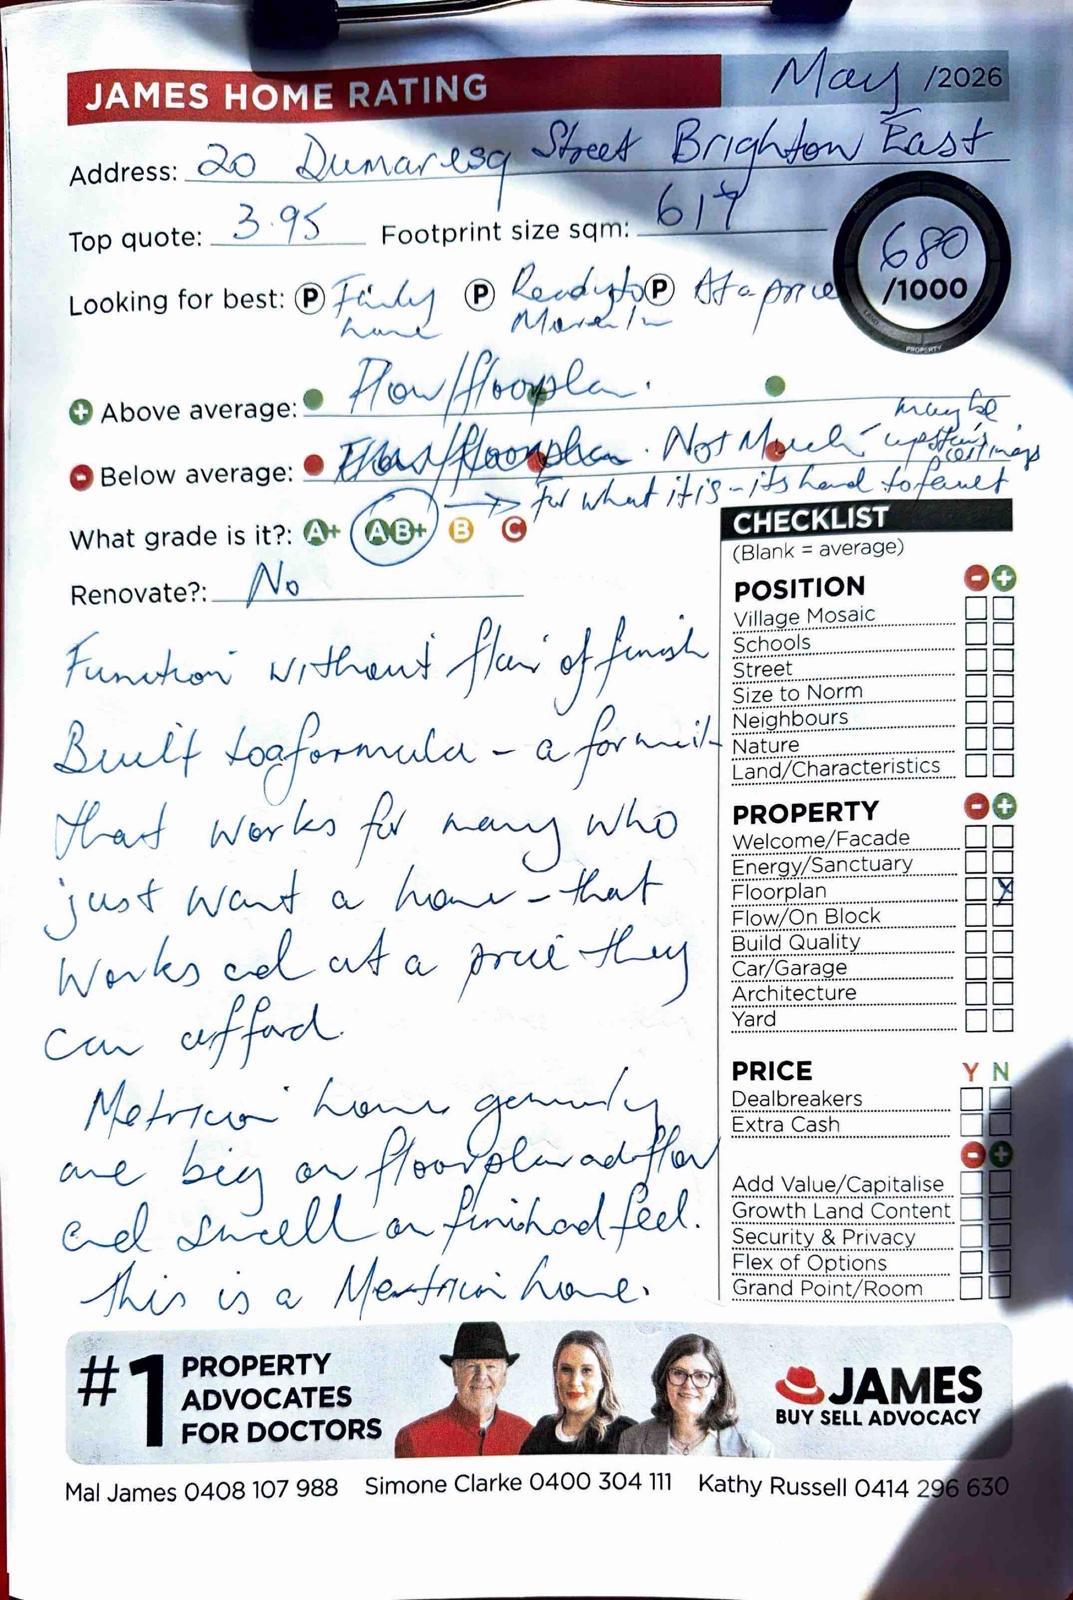 JAMES HOME RATING May /2026
Address: 20 Dumaresq Street Brighton East
Top quote: 3.95 Footprint size sqm: 617
680
/1000
Looking for best: P Family home P Ready to Move In P At a price
+ Above average: Flow/floorplan.
- Below average: Flow/floorplan. Not Much - maybe upstairs ceilings
→ For what it is - its hard to fault
What grade is it?: A+ AB+ B C
Renovate?: No
Function without flair of finish
Built to a formula - a formula
that works for many who
just want a home - that
works and at a price they
can afford.
Metricon homes generally
are big on floorplan and flow
and small on finished feel.
This is a Metricon home.
CHECKLIST
(Blank = average)
POSITION - +
Village Mosaic
Schools
Street
Size to Norm
Neighbours
Nature
Land/Characteristics
PROPERTY - +
Welcome/Facade
Energy/Sanctuary
Floorplan X
Flow/On Block
Build Quality
Car/Garage
Architecture
Yard
PRICE Y N
Dealbreakers
Extra Cash
- +
Add Value/Capitalise
Growth Land Content
Security & Privacy
Flex of Options
Grand Point/Room
#1 PROPERTY
ADVOCATES
FOR DOCTORS
JAMES
BUY SELL ADVOCACY
Mal James 0408 107 988 Simone Clarke 0400 304 111 Kathy Russell 0414 296 630